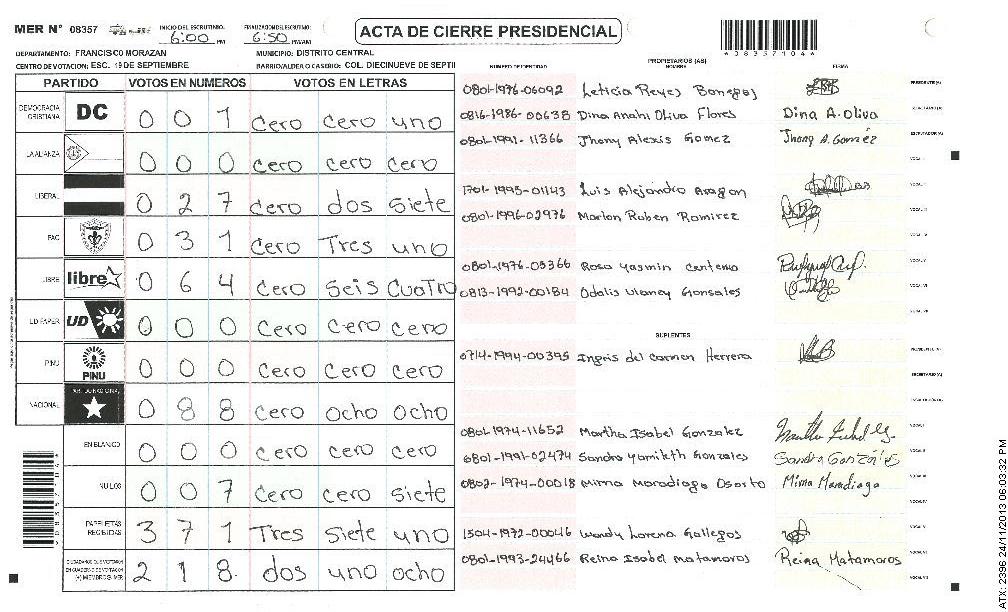 MER N° 08357
INICIO DEL ESCRUTINIO:
6:00 PM
FINALIZACION DEL ESCRUTINIO:
6:50 PM/AM
ACTA DE CIERRE PRESIDENCIAL
DEPARTAMENTO: FRANCISCO MORAZAN
MUNICIPIO: DISTRITO CENTRAL
CENTRO DE VOTACION: ESC. 19 DE SEPTIEMBRE
BARRIO/ALDEA O CASERIO: COL. DIECINUEVE DE SEPTI
PARTIDO VOTOS EN NUMEROS VOTOS EN LETRAS
DEMOCRACIA CRISTIANA DC 0 0 1 cero cero uno
LA ALIANZA 0 0 0 cero cero cero
LIBERAL 0 2 7 cero dos siete
PAC 0 3 1 cero Tres uno
LIBRE libre 0 6 4 cero seis cuatro
UD FAPER UD 0 0 0 cero cero cero
PINU PINU 0 0 0 cero cero cero
NACIONAL 0 8 8 cero ocho ocho
EN BLANCO 0 0 0 cero cero cero
NULOS 0 0 7 cero cero siete
PAPELETAS RECIBIDAS 3 7 1 Tres siete uno
CIUDADANOS QUE VOTARON EN CUADERNO DE VOTACION (+) MIEMBROS MER 2 1 8 dos uno ocho
NUMERO DE IDENTIDAD
PROPIETARIOS (AS)
NOMBRE
FIRMA
0801-1976-06092 Leticia Reyes PRESIDENTE(A)
0816-1986-00638 Dina Anahi Oliva Flores Dina A. Oliva SECRETARIO(A)
0801-1991-11366 Jhony Alexis Gomez Jhony A. Gomez ESCRUTADOR(A)
1701-1995-01143 Luis Alejandro Aragon
0801-1996-02976 Marlon Ruben Ramirez
0801-1976-05366 Rosa Yasmin Centeno
0813-1992-00184 Odalis Gonsales
SUPLENTES
0714-1994-00395 Ingris del Carmen Herrera PRESIDENTE(A)
SECRETARIO(A)
0801-1974-11652 Martha Isabel Gonzalez
0801-1991-02474 Sandra Yamileth Gonzales Sandra González
0802-1974-00018 Mirna Maradiaga Osorto Mirna Maradiaga
1504-1972-00046 Wendy Lorena Gallegos
0801-1993-24466 Reina Isabel Matamoros Reina Matamoros
ATX: 2396 24/11/2013 06:03:32 PM